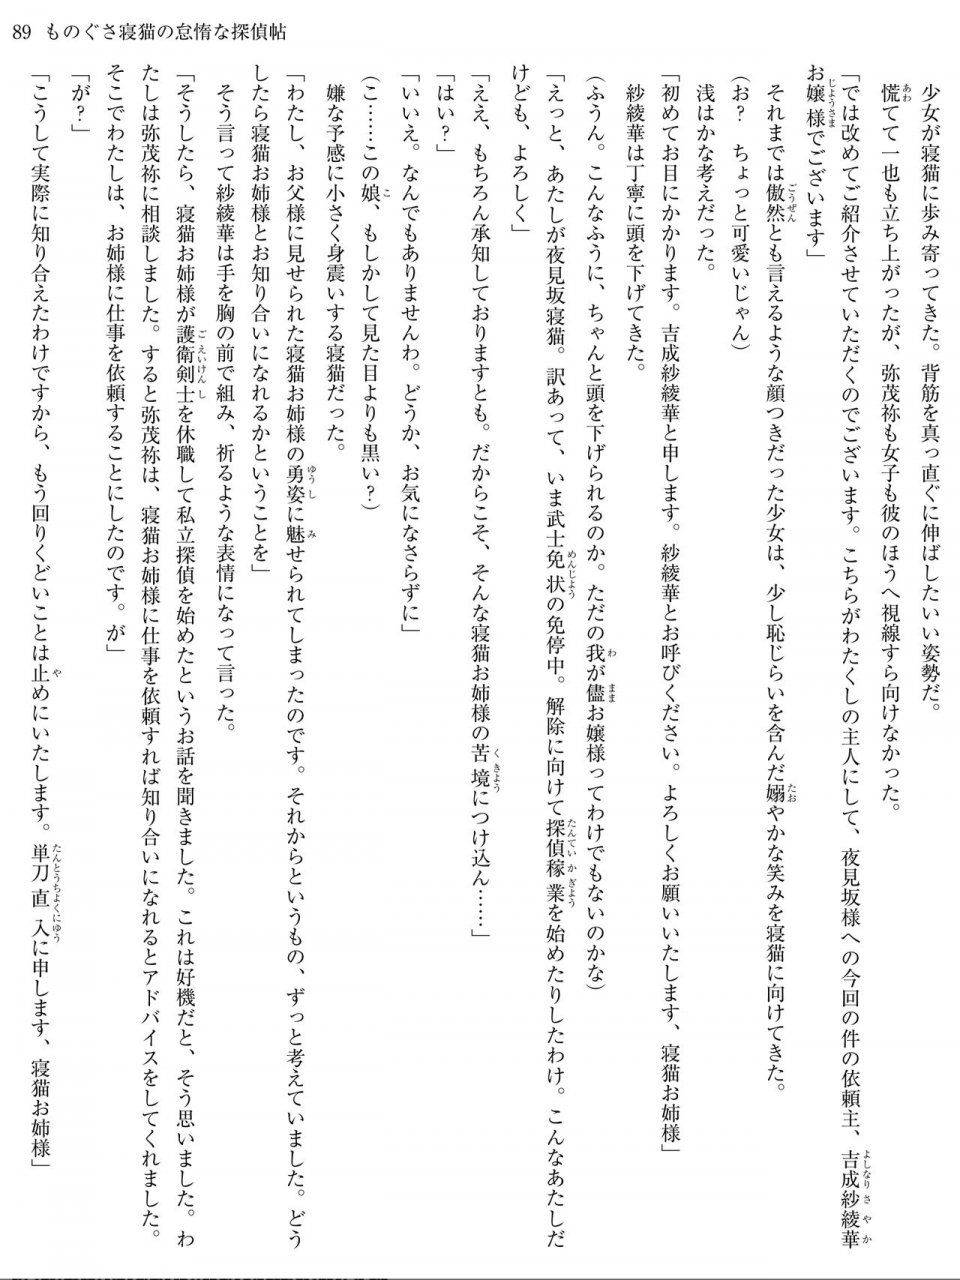 89 ものぐさ寝猫の怠惰な探偵帖
少女が寝猫に歩み寄ってきた。背筋を真っ直ぐに伸ばしたいい姿勢だ。
慌てて一也も立ち上がったが、弥茂祢も女子も彼のほうへ視線すら向けなかった。
「では改めてご紹介させていただくのでございます。こちらがわたくしの主人にして、夜見坂様への今回の件の依頼主、吉成紗綾華
お嬢様でございます」
それまでは傲然とも言えるような顔つきだった少女は、少し恥じらいを含んだ嫋やかな笑みを寝猫に向けてきた。
(お? ちょっと可愛いじゃん)
浅はかな考えだった。
「初めてお目にかかります。吉成紗綾華と申します。紗綾華とお呼びください。よろしくお願いいたします、寝猫お姉様」
紗綾華は丁寧に頭を下げてきた。
(ふうん。こんなふうに、ちゃんと頭を下げられるのか。ただの我が儘お嬢様ってわけでもないのかな)
「えっと、あたしが夜見坂寝猫。訳あって、いま武士免状の免停中。解除に向けて探偵稼業を始めたりしたわけ。こんなあたしだ
けども、よろしく」
「ええ、もちろん承知しておりますとも。だからこそ、そんな寝猫お姉様の苦境につけ込ん……」
「はい?」
「いいえ。なんでもありませんわ。どうか、お気になさらずに」
(こ……この娘、もしかして見た目よりも黒い?)
嫌な予感に小さく身震いする寝猫だった。
「わたし、お父様に見せられた寝猫お姉様の勇姿に魅せられてしまったのです。それからというもの、ずっと考えていました。どう
したら寝猫お姉様とお知り合いになれるかということを」
そう言って紗綾華は手を胸の前で組み、祈るような表情になって言った。
「そうしたら、寝猫お姉様が護衛剣士を休職して私立探偵を始めたというお話を聞きました。これは好機だと、そう思いました。わ
たしは弥茂祢に相談しました。すると弥茂祢は、寝猫お姉様に仕事を依頼すれば知り合いになれるとアドバイスをしてくれました。
そこでわたしは、お姉様に仕事を依頼することにしたのです。が」
「が?」
「こうして実際に知り合えたわけですから、もう回りくどいことは止めにいたします。単刀直入に申します、寝猫お姉様」